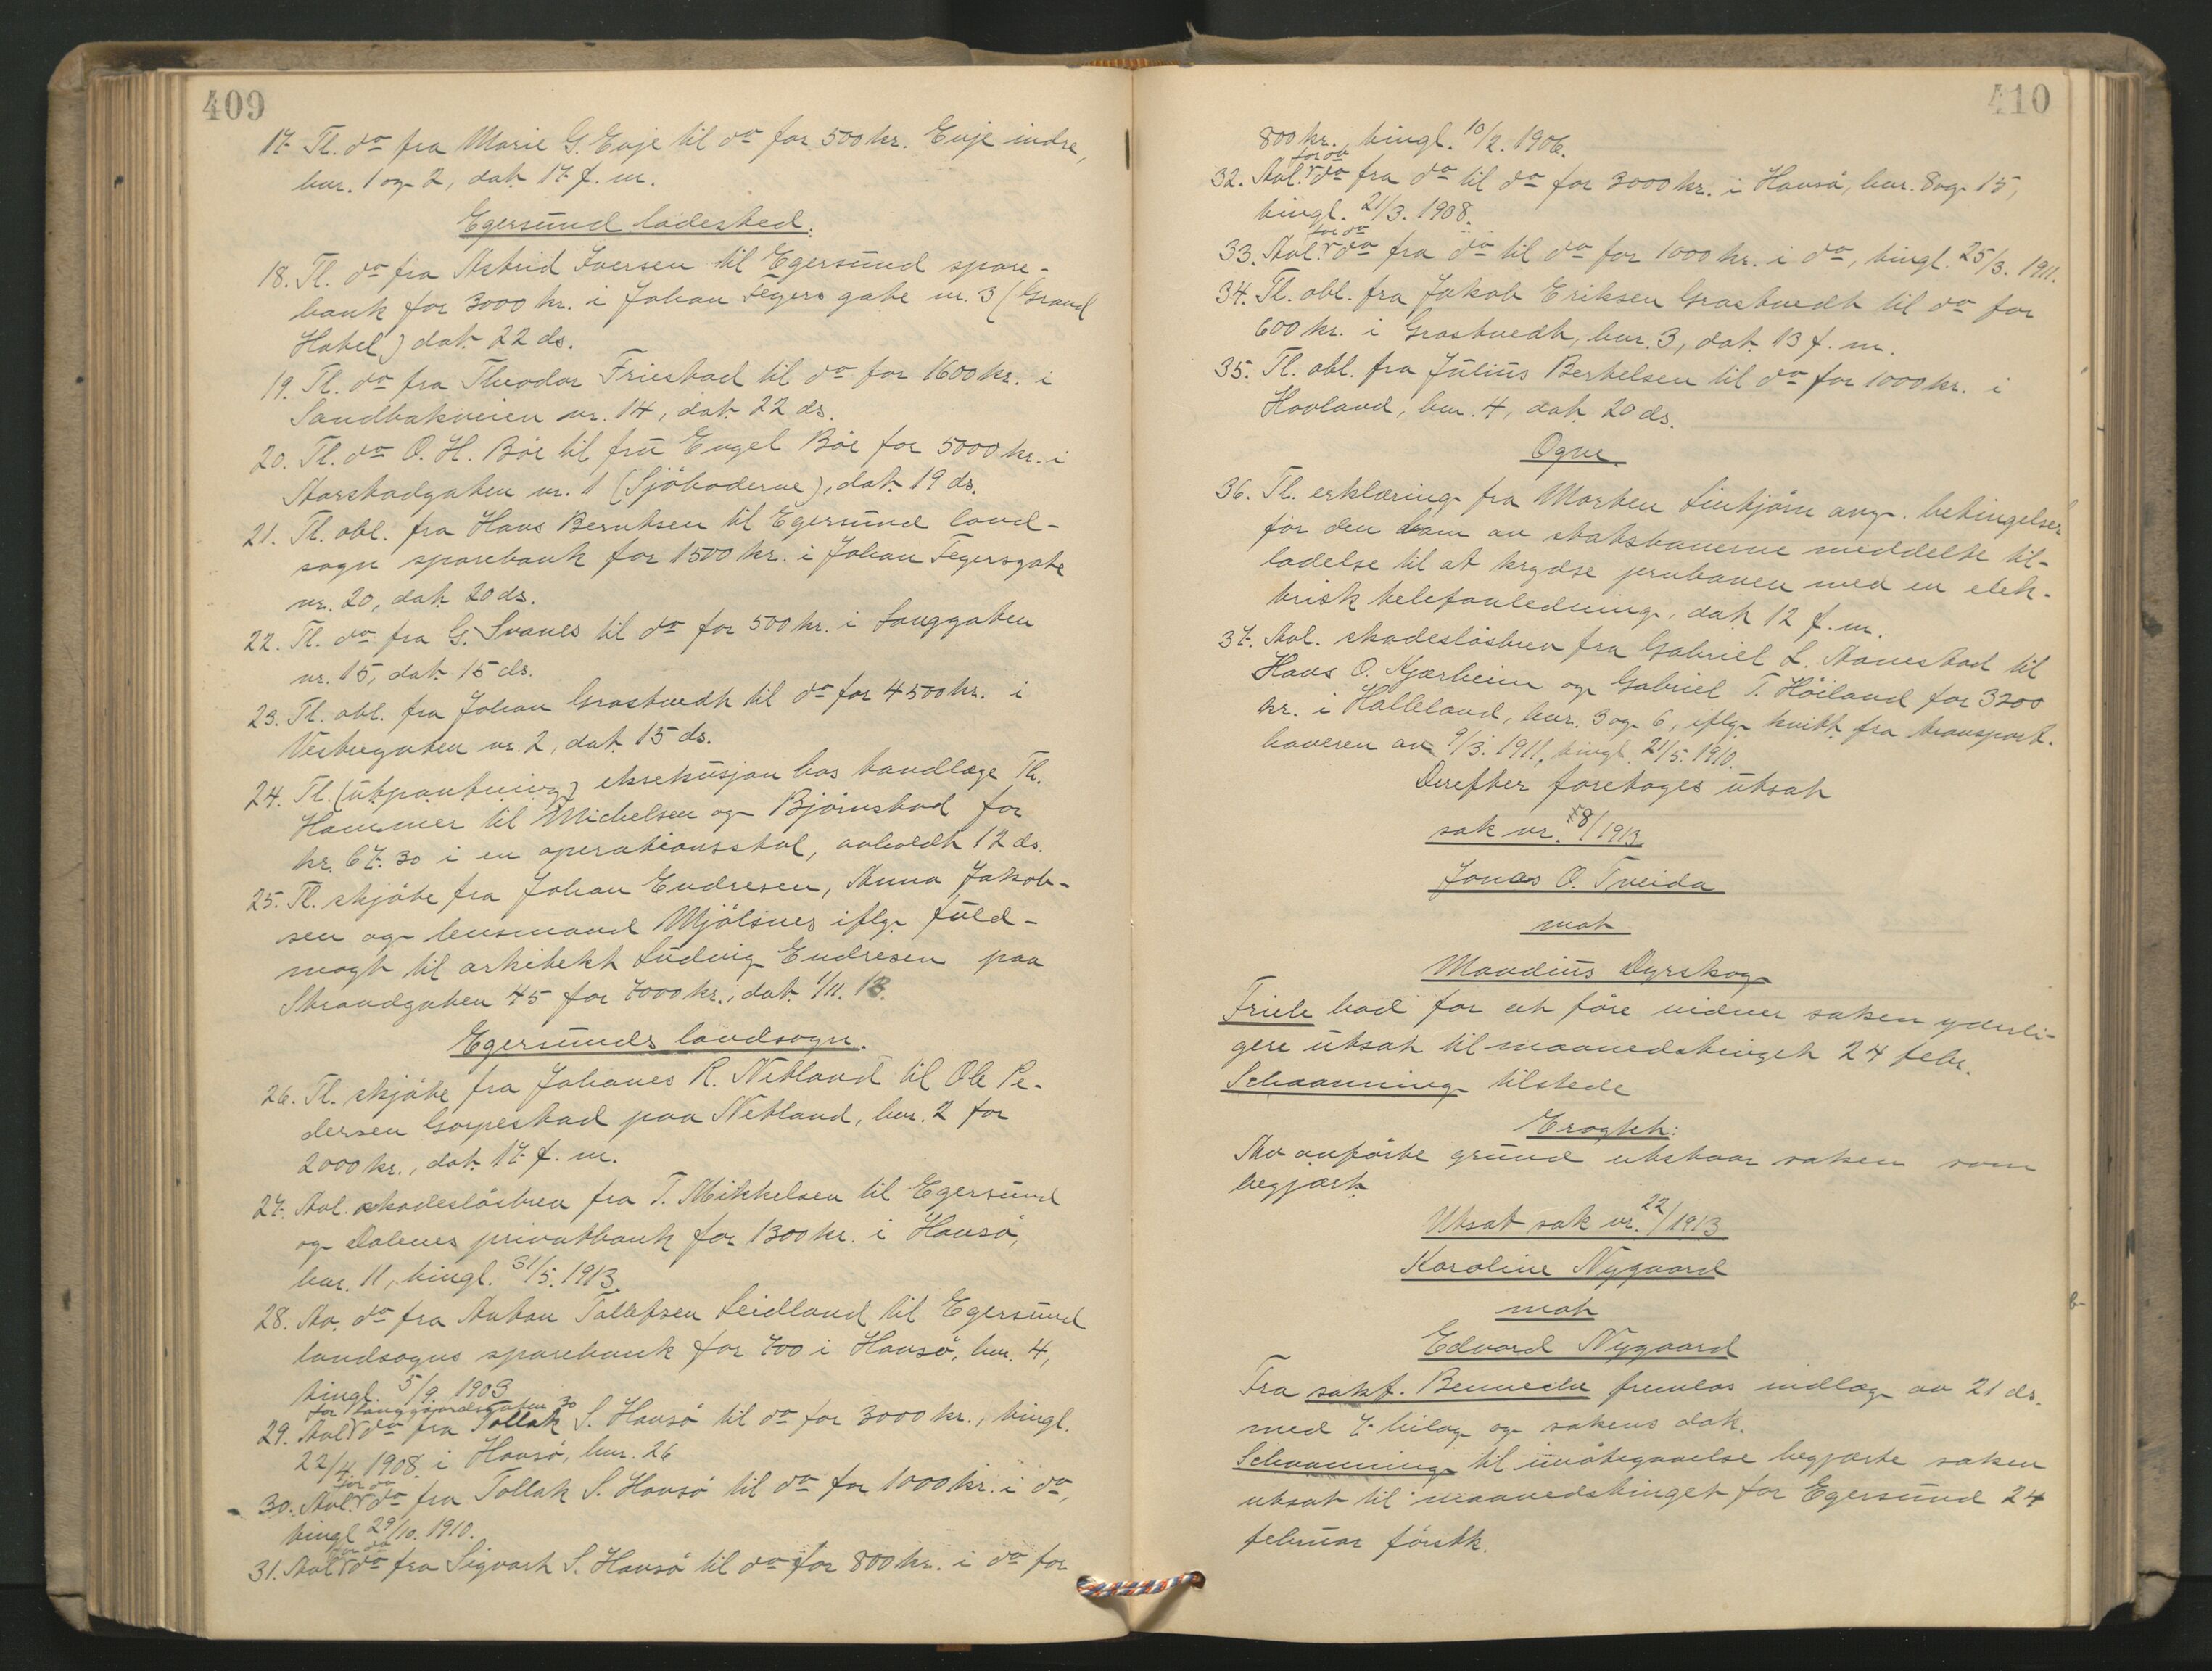 409
17. Tl. do fra Marie G. Eoje til do for 500 kr. Eoje indre,
bnr. 1 og 2, dat. 17 f. m.
Egersund ladested.
18. Tl. do fra Astrid Iversen til Egersund spare-
bank for 3000 kr. i Johan Fegers gate nr. 3 (Grand
Hotel) dat. 22 ds.
19. Tl. do fra Theodor Friestad til do for 1600 kr. i
Sandbakveien nr. 14, dat. 22 ds.
20. Tl. do O. H. Böe til fru Engel Böe for 5000 kr. i
Aarstadgaten nr. 1 (Sjöboderne), dat. 19 ds.
21. Tl. obl. fra Hans Berntsen til Egersund land-
sogn sparebank for 1500 kr. i Johan Fegersgate
nr. 20, dat. 20 ds.
22. Tl. do fra G. Svanes til do for 500 kr. i Langgaten
nr. 15, dat. 15 ds.
23. Tl. obl. fra Johan Grastvedt til do for 4500 kr. i
Vestregaten nr. 2, dat. 15 ds.
24. Tl. (utpantning) eksekusjon hos tandlæge Th.
Hammer til Michelsen og Björnstad for
kr. 67.30 i en operationsstol, avholdt 12 ds.
25. Tl. skjöte fra Johan Endresen, Anna Jakob-
sen og lensmand Mjölsnes iflg. fuld-
magt til arkitekt Ludvig Endresen paa
Strandgaten 45 for 7000 kr., dat. 1/11. 13.
Egersunds landsogn.
26. Tl. skjöte fra Johanes R. Netland til Ole Pe-
dersen Gorpestad paa Netland, bnr. 2 for
2000 kr., dat. 17 f. m.
27. Avl. skadeslösbrev fra T. Mikkelsen til Egersund
og Dalenes privatbank for 1300 kr. i Havsö,
bnr. 11, tingl. 31/5. 1913.
28. Av. do fra Anton Tollefsen Leidland til Egersund
landsogns sparebank for 700 i Havsö, bnr. 4,
tingl. 5/9. 1903
for Langgaardsgaten 30
29. Avl. do fra Tollak S. Havsö til do for 3000 kr., tingl.
22/4. 1908. i Havsö, bnr. 26
for do
30. Avl. do fra Tollak S. Havsö til do for 1000 kr. i do,
tingl. 29/10. 1910.
for do
31. Avl. do fra Sigvart S. Havsö til do for 800 kr. i do for
410
800 kr., tingl. 10/2. 1906.
for do
32. Avl. do fra do til do for 3000 kr. i Havsö, bnr. 8 og 15,
tingl. 21/3. 1908.
for do
33. Avl. do fra do til do for 1000 kr. i do, tingl. 25/3. 1911.
34. Tl. obl. fra Jakob Eriksen Grastvedt til do for
600 kr. i Grastvedt, bnr. 3, dat. 13 f. m.
35. Tl. obl. fra Julius Bertelsen til do for 1000 kr. i
Hovland, bnr. 4, dat. 20 ds.
Ogne.
36. Tl. erklæring fra Morten Lintjörn ang. betingelser
for den ham av statsbanerne meddelte til-
ladelse til at krydse jernbanen med en elek-
trisk telefonledning, dat. 12 f. m.
37. Avl. skadeslösbrev fra Gabriel L. Aanestad til
Hans O. Kjærheim og Gabriel T. Höiland for 3200
kr. i Halleland, bnr. 3 og 6, iflg. kvitt. fra transport-
haveren av 9/3. 1911, tingl. 21/5. 1910.
Derefter foretoges utsat
sak nr. 18/1913
Jonas O. Tveida
mot
Maudius Dyrskog
Friele bad for at före vidner saken yderli-
gere utsat til maanedstinget 24 febr.
Schaanning tilstede
Eragtet:
Av anförte grund utstaar saken som
begjært.
Utsat sak nr. 22/1913
Karoline Nygaard
mot
Edvard Nygaard
Fra sakf. Benneche fremlas indlæg av 21 ds.
med 7 bilag og sakens dok.
Schaanning til imötegaaelse begjærte saken
utsat til maanedstinget for Egersund 24
februar förstk.